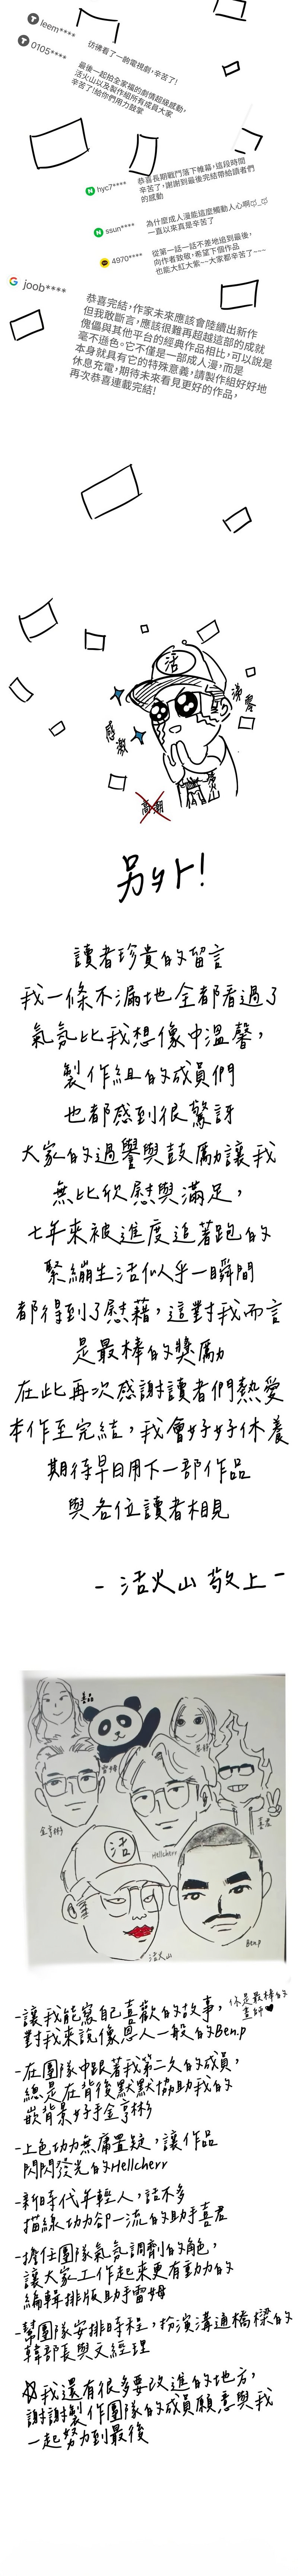 leem****
彷彿看了一齣電視劇,辛苦了!
0105****
最後一起拍全家福的劇情超級感動,
活火山以及製作組所有成員大家
辛苦了!給你們用力鼓掌
hyc7****
恭喜長期戰鬥落下帷幕,這段時間
辛苦了,謝謝到最後完結帶給讀者們
的感動
ssun****
為什麼成人漫能這麼觸動人心啊
一直以來真是辛苦了
4970****
從第一話一話不差地追到最後,
向作者致敬,希望下個作品
也能大紅大紫~~大家都辛苦了~~~
joob****
恭喜完結,作家未來應該會陸續出新作
但我敢斷言,應該很難再超越這部的成就
傀儡與其他平台的經典作品相比,可以說是
毫不遜色。它不僅是一部成人漫,而是
本身就具有它的特殊意義,請製作組好好地
休息充電,期待未來看見更好的作品,
再次恭喜連載完結!
活
感激
高潮
另外!
讀者珍貴的留言
我一條不漏地全都看過了
氣氛比我想像中溫馨,
製作組的成員們
也都感到很驚訝
大家的過譽與鼓勵讓我
無比欣慰與滿足,
七年來被進度追著跑的
緊繃生活似乎一瞬間
都得到了慰藉,這對我而言
是最棒的獎勵
在此再次感謝讀者們熱愛
本作至完結,我會好好休養
期待早日用下一部作品
與各位讀者相見
- 活火山 敬上 -
雷姆
金亨彬
Hellcherr
喜君
活
活火山
Ben.p
-讓我能寫自己喜歡的故事,
對我來說像恩人一般的Ben.p
你是最棒的
畫師♥
-在團隊中跟著我第二久的成員,
總是在背後默默協助我的
嵌背景好手金亨彬
-上色功力無庸置疑,讓作品
閃閃發光的Hellcherr
-新時代年輕人,話不多
描線功力卻一流的助手喜君
-擔任團隊氣氛調劑的角色,
讓大家工作起來更有動力的
編輯排版助手雷姆
-幫團隊安排時程,扮演溝通橋樑的
韓部長與文經理
我還有很多要改進的地方,
謝謝製作團隊的成員願意與我
一起努力到最後